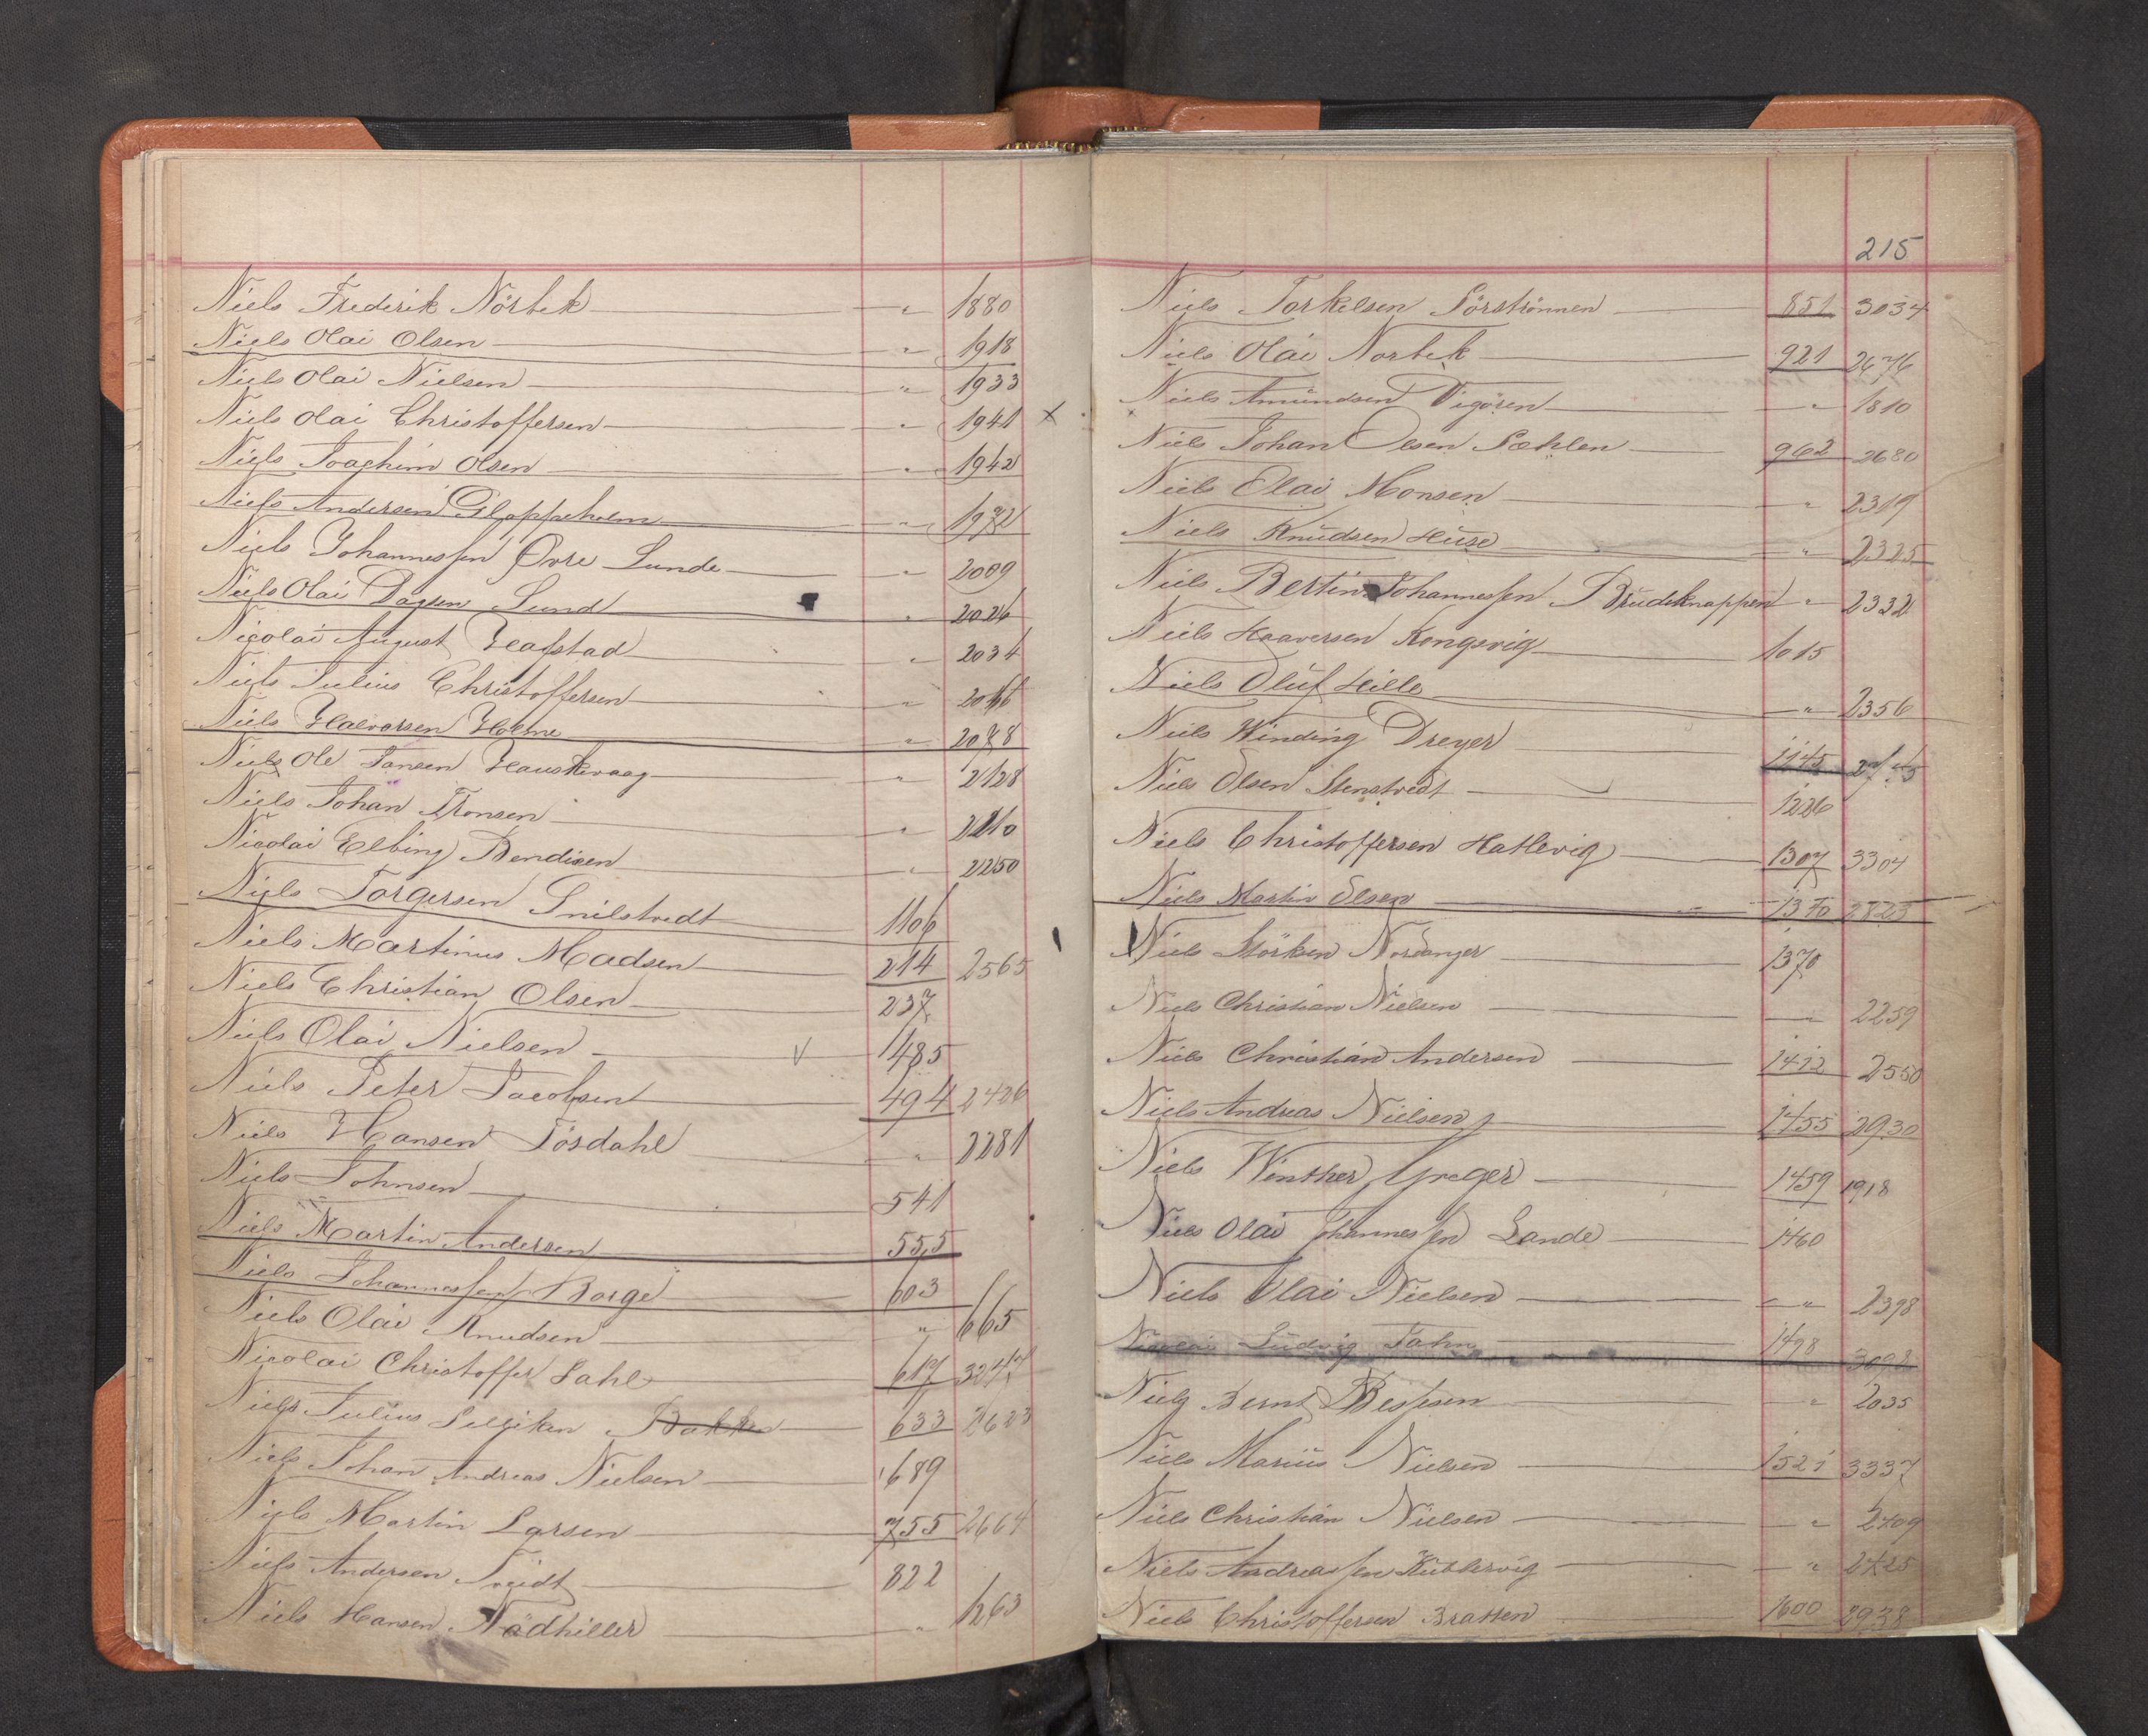 Niels Frederik Nörbek — " 1880
Niels Olai Olsen — " 1918
Niels Olai Nielsen — " 1933
Niels Olai Christoffersen — " 1941 x
Niels Joachim Olsen — " 1942
Niels Andersen Gloppeholm — " 1972
Niels Johannessen Øvre Lunde — " 2009
Niels Olai Dagsen Lund — " 2026
Nicolai August Hafstad — " 2034
Niels Julius Christoffersen — "
Niels Halvorsen Holme — " 2078
Niels Ole Hauskevaag — " 2128
Niels Johan Tronsen — " 2210
Nicolai Elbing Bendixen — " 2250
Niels Torgersen Snilstvedt 1106
Niels Martinus Madsen — 214 2565
Niels Christian Olsen — 237
Niels Olai Nielsen — V 1485
Niels Peter Jacobsen — 494 2426
Niels Hansen Fösdahl — " 2281
Niels Johnsen — 541
Niels Martin Andersen — 555
Niels Johannessen Borge — 603
Niels Olai Knudsen — " 665
Nicolai Christoffer Dahl — 617
Niels Julius Bakke — 633 2623
Niels Johan Andreas Nielsen — 689
Niels Martin Larsen — 755 2664
Niels Andersen Tveidt — 822
Niels Hansen Nödhiller — " 1263
215
Niels Torkelsen Sörströnnen — 851 3034
Niels Olai Norbek — 921 2676
Niels Amundsen Vigören — " 1810
Niels Johan Olsen Sæhlen — 962 2680
Niels Elai Monsen — " 2319
Niels Knudsen Huse — " 2325
Niels Bertin Johannessen Brudeknappen " 2332
Niels Haaversen Kongsvig — 1015
Niels Oluf Hille — " 2356
Niels Winding Dreyer — 1145
Niels Olsen Stenstvedt — 1226
Niels Christoffersen Hatlevig — 1307 3304
Niels Martin Olsen — 1340 2823
Niels Störksen Nordanger — 1370
Niels Christian Nielsen — 2259
Niels Christian Andersen — 1412 2550
Niels Andreas Nielsen — 1455 2930
Niels Winther Greger — 1459 1918
Niels Olai Johannessen Lande — 1460
Niels Olai Nielsen — " 2398
Nicolai Ludvig Jahn — 1498 3098
Niels Bernt Bessesen — " 2035
Niels Marius Nielsen — 1521 3337
Niels Christian Nielsen — " 2409
Niels Andreassen Kublevig — " 2425
Niels Christoffersen Bratten 1600 2938